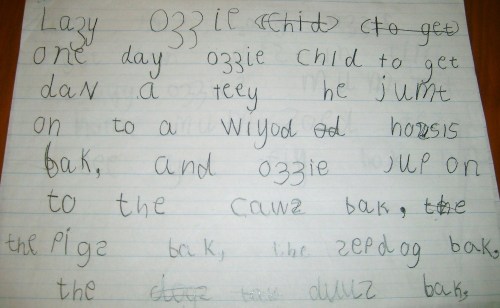 Lazy Ozzie (Chid) (to get)
one day ozzie Chid to get
daN a teey he jumt
on to a wiyod od housis
bak, and ozzie jup on
to the cawz bak, the
the Pigz bak, the zepdog bak,
the bak,